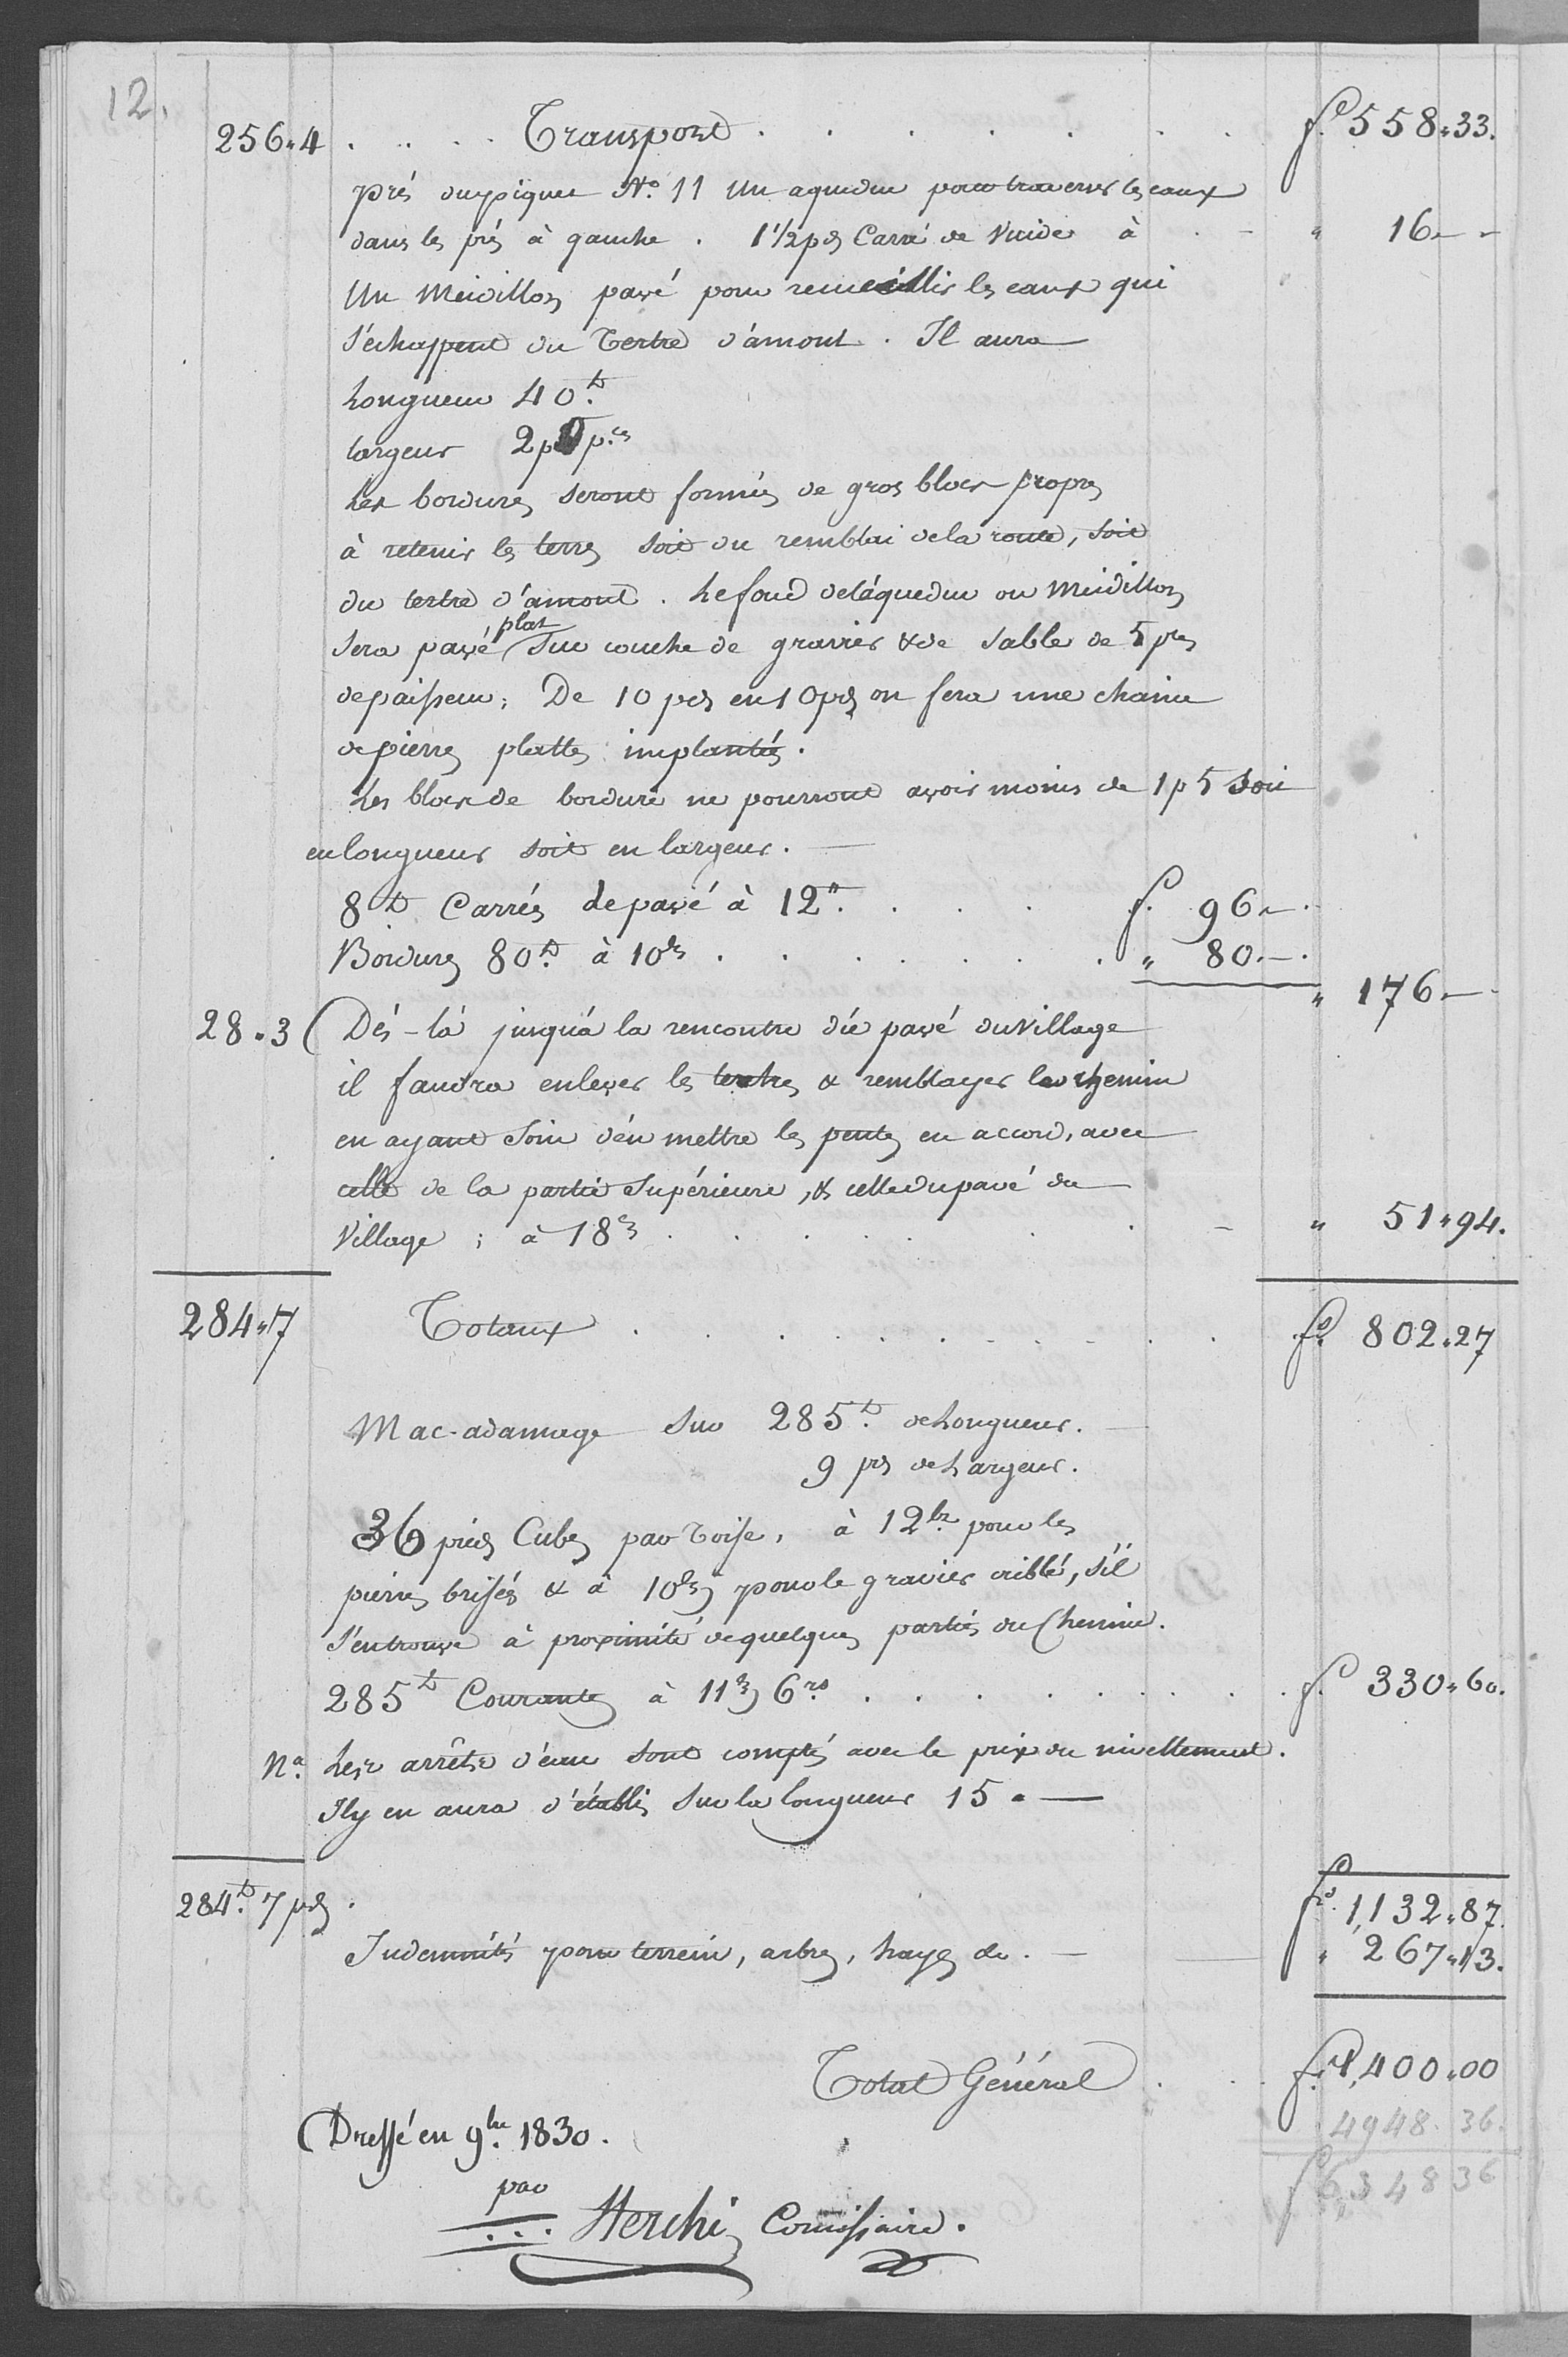 12.
256„4 . . . . Transport . . . . . . . f. 558„33.
près du piquet N.o 11 Un aqueduc pour traverser les eaux
dans les prés à gauche . 1 1/2 pds Carré de Vuide à . - „ 16 - -
Un Meidillon pavé pour recueillir les eaux qui
s'échappent du Tertre d'amont . Il aura
Longueur 40.t
largeur 2p pces
Les bordures seront formées de gros blocs propres
à retenir les terres soit du remblai de la route, soit
du tertre d'amont . Le fond de l'aqueduc ou Meidillon
sera pavé plat sur couche de gravier & de sable de 5 pces
d'epaisseur ; De 10 pds en 10 pds on fera une chaine
de pierres plattes implantées .
Les blocs de bordure ne pourront avoir moins de 1p 5 soit
en longueur soit en largeur . —
8t Carrés de pavé à 12„ . . . . f. 96„-.
Bordures 80t à 10bz . . . . . . . „ 80.-.
„ 176 -
28„3 Dès-là jusqu'à la rencontre du pavé du village
il faudra enlever les tertres & remblayer le chemin
en ayant soin d'en mettre les pentes en accord, avec
celle de la partie supérieure, & celle du pavé du
Village ; à 18bz . . . . . - „ 51„94.
284„7 Totaux . . . . . . . . f. 802„27
Mac-adamage sur 285t de Longueur. —
9 pds de Largeur.
36 pieds Cubes par Toise, à 12bz pour les
pierres brisées & à 10bz pour le gravier criblé, s'il
s'en trouve à proximité de quelques parties du Chemin.
285t Courantes à 11bz 6rs . . . . . . . . f. 330„60.
Na. Les arrêts d'eau sont comptés avec le prix du nivellement.
Il y en aura d'établis sur la longueur 15 . —
284t. 7 pds . f. 1,132„87.
Indemnités pour terrein, arbres, hayes &c . — „ 267„13.
Total Général . . f. 1,400„00
4948. 36.
f. 6348 36
Dressé en 9.bre 1830.
par
Herchi Comissaire.